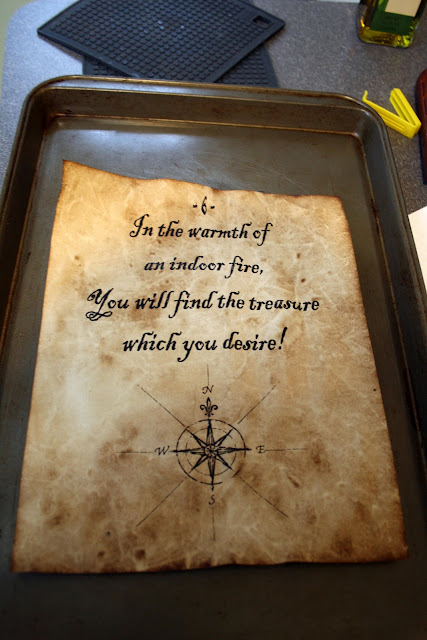 -6-
In the warmth of
an indoor fire,
You will find the treasure
which you desire!
N
W E
S